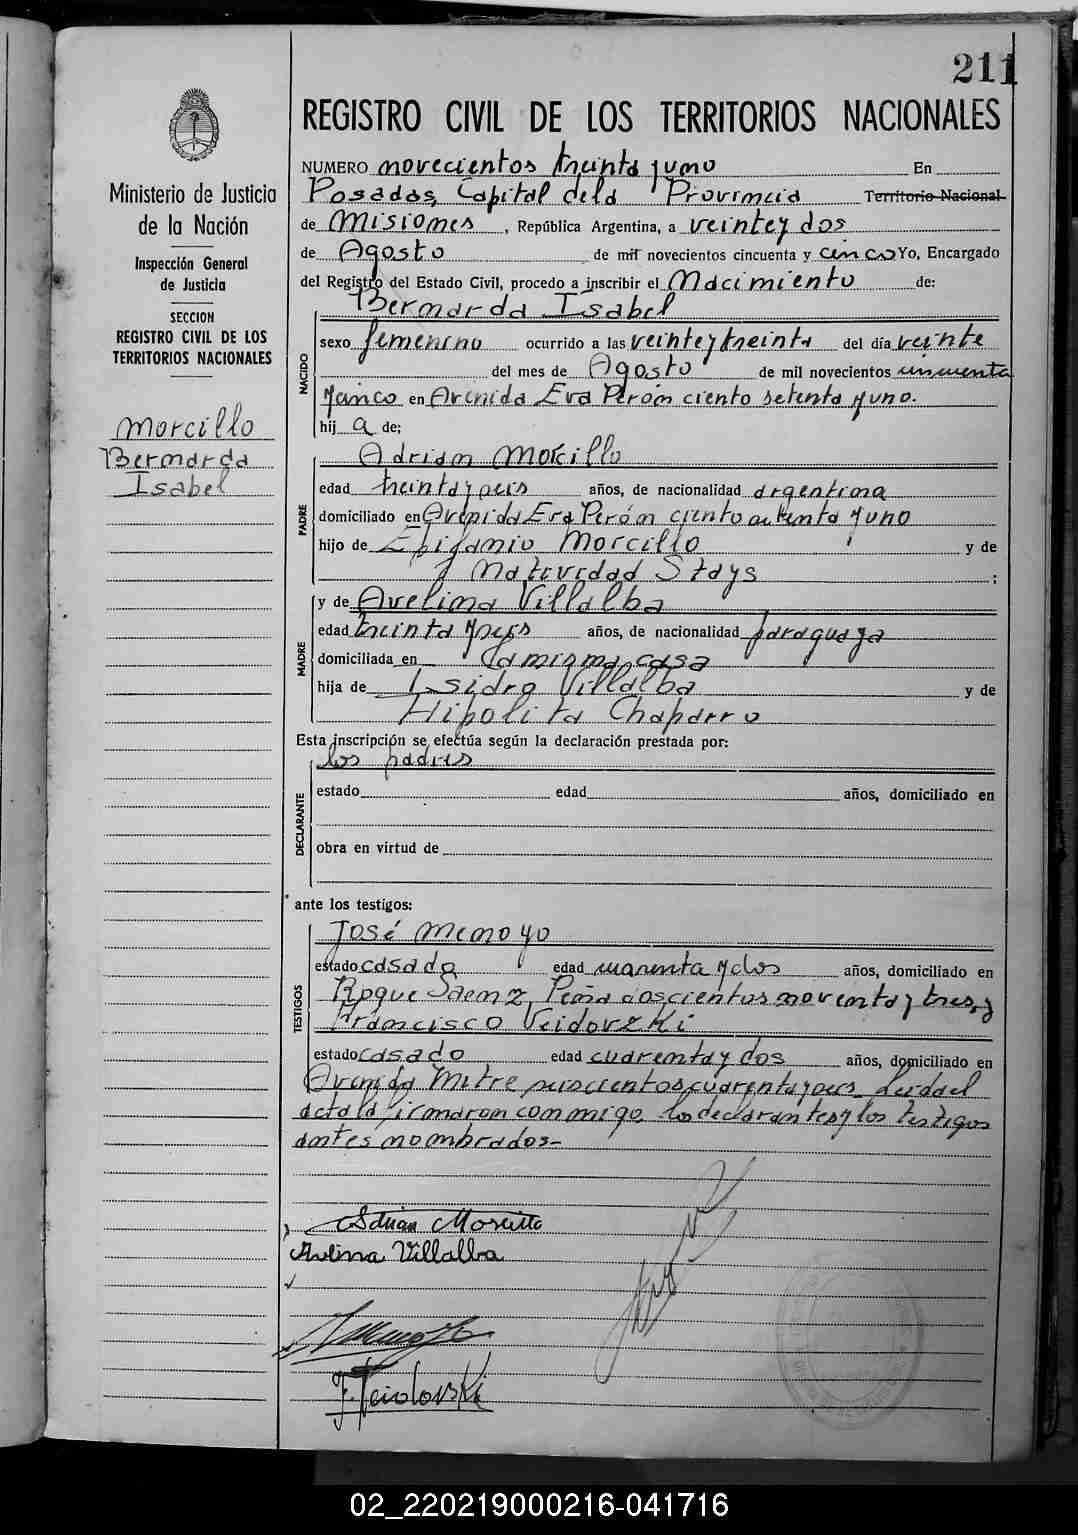 211
Ministerio de Justicia
de la Nación
Inspección General
de Justicia
SECCION
REGISTRO CIVIL DE LOS
TERRITORIOS NACIONALES
Morcillo
Bernarda
Isabel
REGISTRO CIVIL DE LOS TERRITORIOS NACIONALES
NUMERO novecientos treinta y uno En
Posadas, Capital de la Provincia Territorio Nacional
de Misiones, República Argentina, a veinte y dos
de Agosto de mil novecientos cincuenta y cinco Yo, Encargado
del Registro del Estado Civil, procedo a inscribir el Nacimiento de:
Bernarda Isabel
NACIDO
sexo femenino ocurrido a las veinte y treinta del día veinte
del mes de Agosto de mil novecientos cincuenta
y cinco en Avenida Eva Perón ciento setenta y uno.
hij a de;
PADRE
Adrian Morcillo
edad treinta y seis años, de nacionalidad argentina
domiciliado en Avenida Eva Perón ciento setenta y uno
hijo de Epifanio Morcillo y de
Natividad Stays ;
MADRE
y de Avelina Villalba
edad treinta y seis años, de nacionalidad paraguaya
domiciliada en la misma casa
hija de Isidro Villalba y de
Hipolita Chaparro
Esta inscripción se efectúa según la declaración prestada por:
los padres
DECLARANTE
estado edad años, domiciliado en
obra en virtud de
ante los testigos:
TESTIGOS
José Menoyo
estado casado edad cuarenta y dos años, domiciliado en
Roque Saenz Peña doscientos noventa y tres, y
Francisco Veidovzki
estado casado edad cuarenta y dos años, domiciliado en
Avenida Mitre seiscientos cuarenta y seis. Leida el
acta la firmaron conmigo, los declarantes y los testigos
antes nombrados-
Adrian Morcillo
Avelina Villalba
02_220219000216-041716